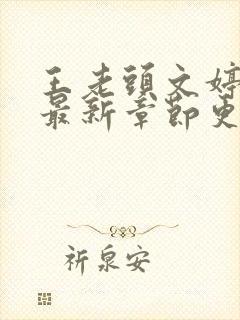 王老頭文婷
最新章節更
祈泉安